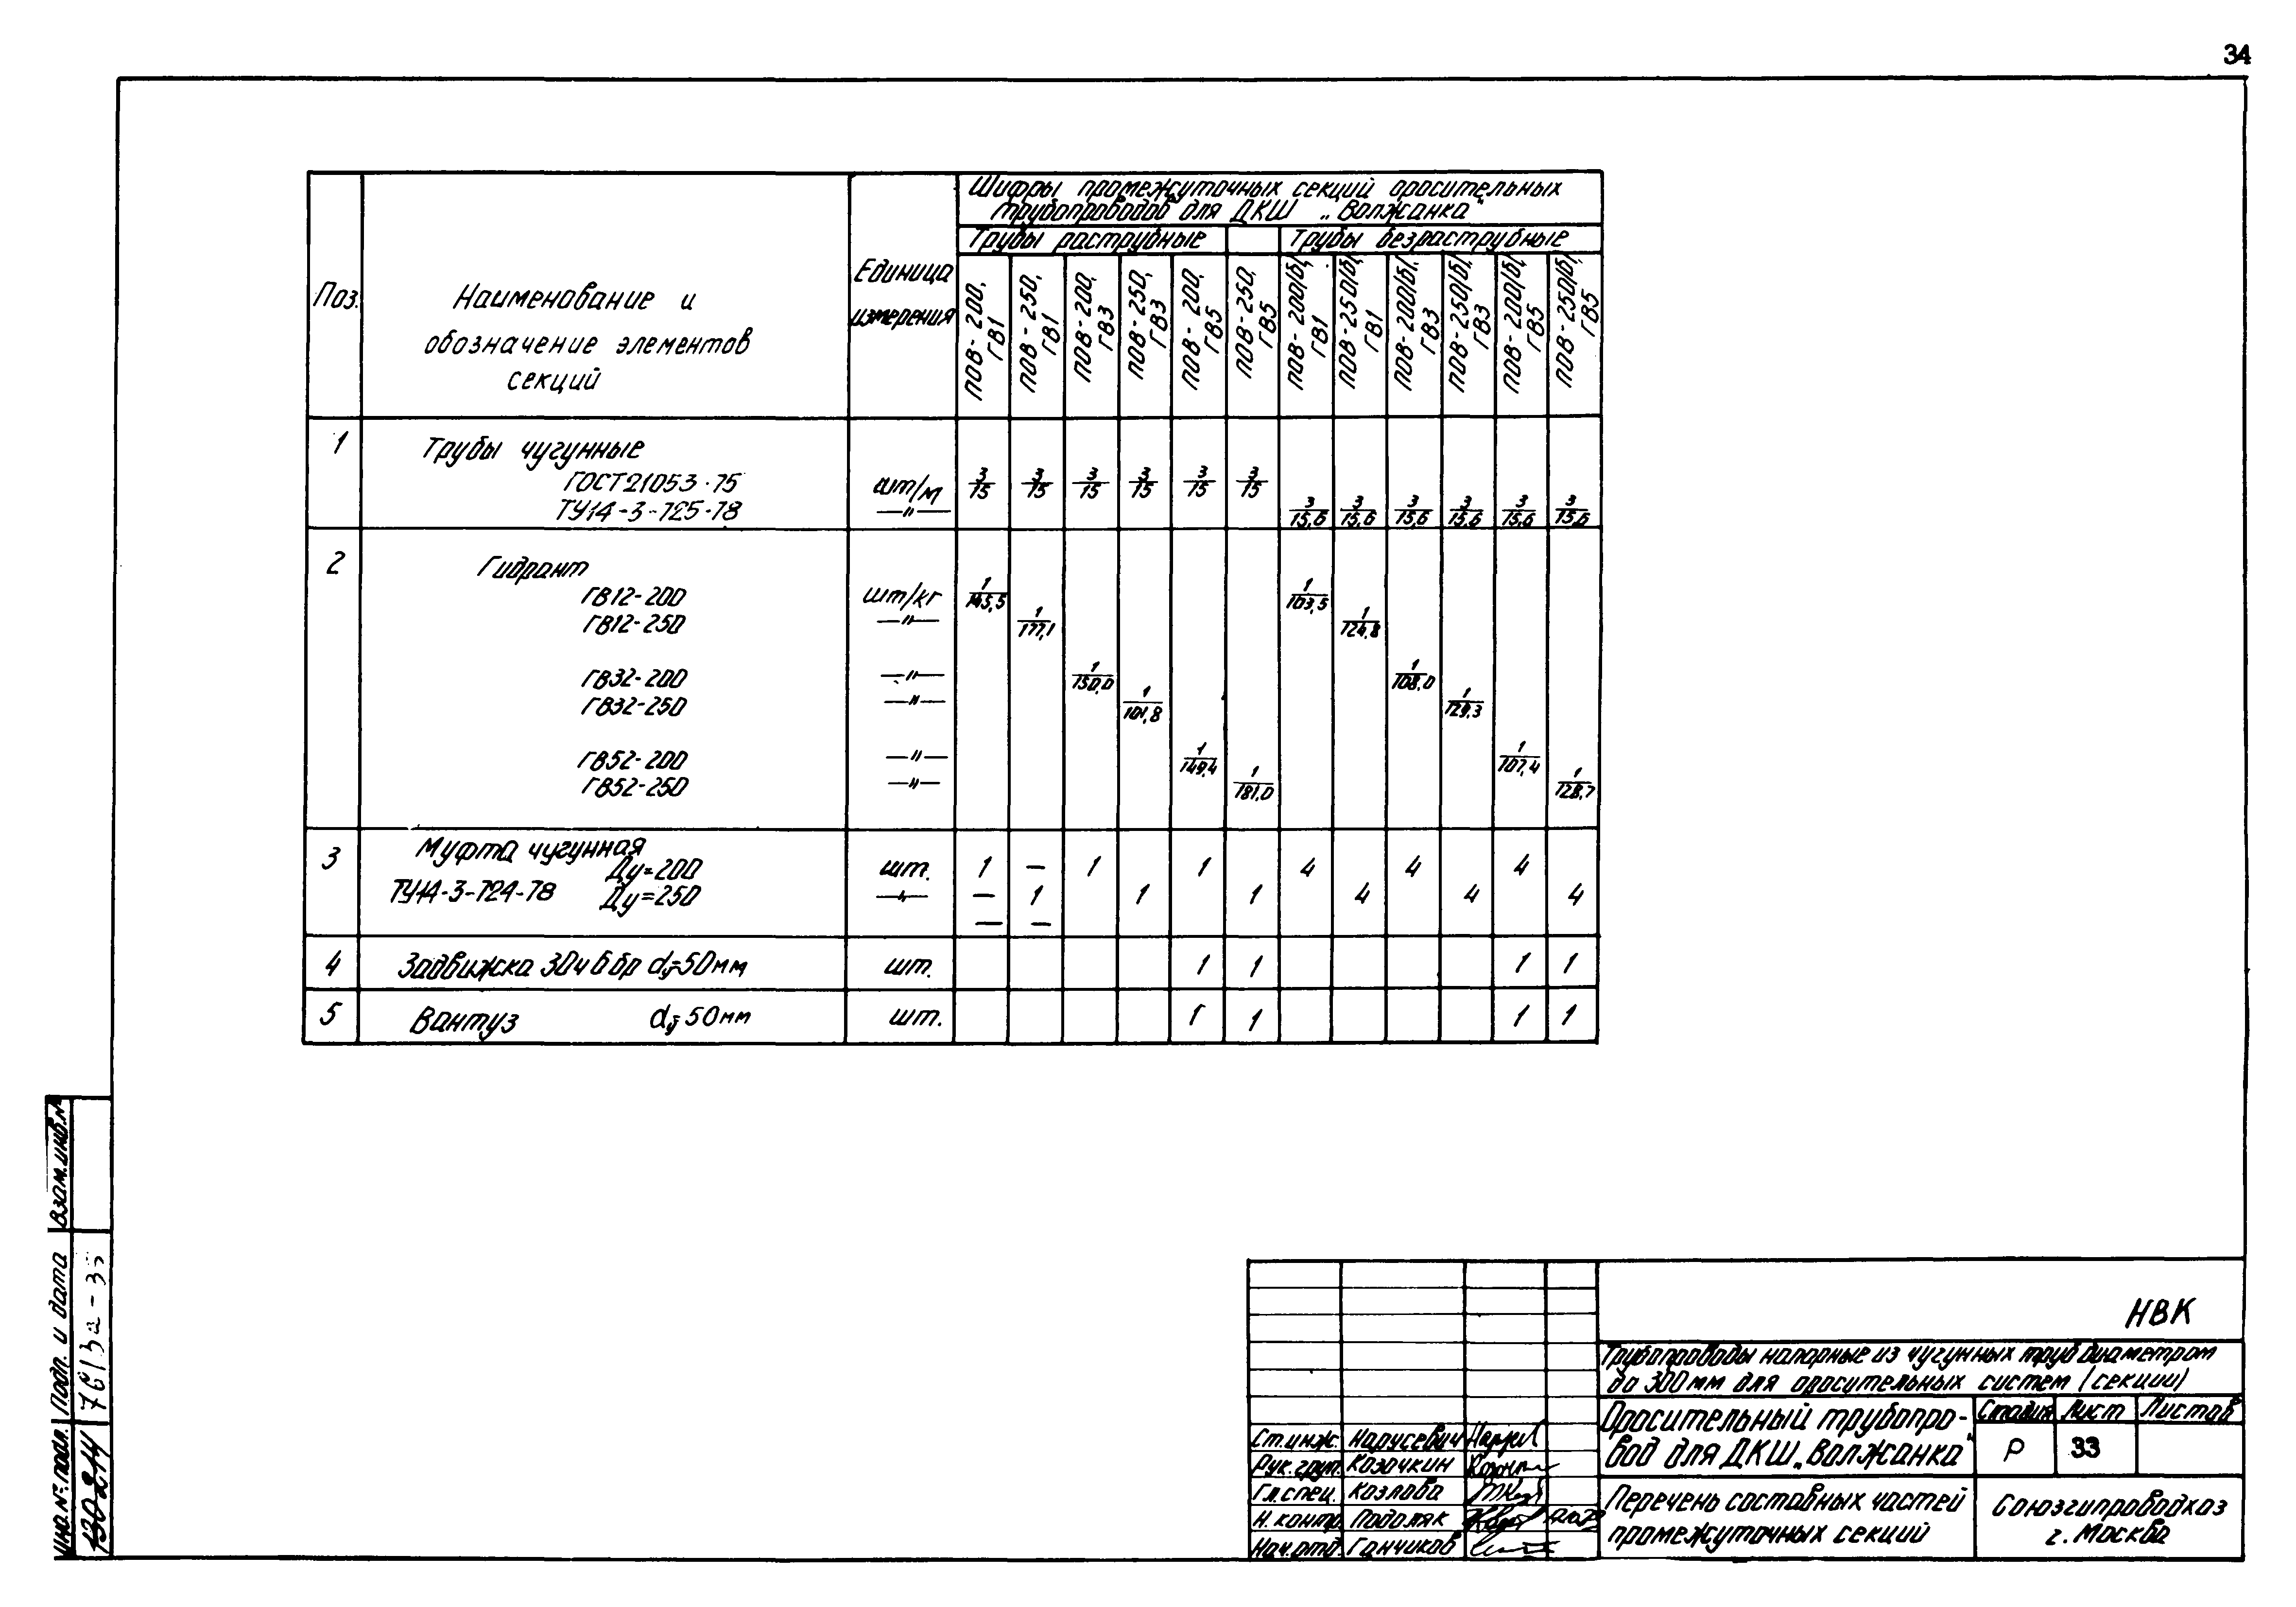 34
Шифры промежуточных секций оросительных
трубопроводов для ДКШ „Волжанка"
Трубы раструбные
Трубы безраструбные
Поз.
Наименование и
обозначение элементов
секций
Единица
измерения
ПОВ-200, ГВ1
ПОВ-250, ГВ1
ПОВ-200, ГВ3
ПОВ-250, ГВ3
ПОВ-200, ГВ5
ПОВ-250, ГВ5
ПОВ-200/б/, ГВ1
ПОВ-250/б/, ГВ1
ПОВ-200/б/, ГВ3
ПОВ-250/б/, ГВ3
ПОВ-200/б/, ГВ5
ПОВ-250/б/, ГВ5
1 Трубы чугунные
ГОСТ 21053-75 шт/м 3/15 3/15 3/15 3/15 3/15 3/15
ТУ14-3-725-78 —"— 3/15,6 3/15,6 3/15,6 3/15,6 3/15,6 3/15,6
2 Гидрант
ГВ12-200 шт/кг 1/145,5 1/103,5
ГВ12-250 —"— 1/177,1 1/124,8
ГВ32-200 —"— 1/150,0 1/108,0
ГВ32-250 —"— 1/101,8 1/129,3
ГВ52-200 —"— 1/149,4 1/107,4
ГВ52-250 —"— 1/181,0 1/128,7
3 Муфта чугунная
Ду=200 шт. 1 — 1 1 4 4 4
ТУ14-3-724-78 Ду=250 —"— — 1 1 1 4 4 4
— —
4 Задвижка 30ч6бр dу=50мм шт. 1 1 1 1
5 Вантуз dу=50мм шт. 1 1 1 1
Взам.инв.№
Подп. и дата
Инв.№ подл.
7613а-35
130214
НВК
Трубопроводы напорные из чугунных труб диаметром
до 300мм для оросительных систем (секции)
Оросительный трубопро-
вод для ДКШ „Волжанка"
Стадия Лист Листов
Р 33
Перечень составных частей
промежуточных секций
Союзгипроводхоз
г. Москва
Ст.инж. Нарусевич
Рук.груп. Козочкин
Гл.спец. Козлова
Н.контр. Подоляк
Нач.отд. Ганчиков